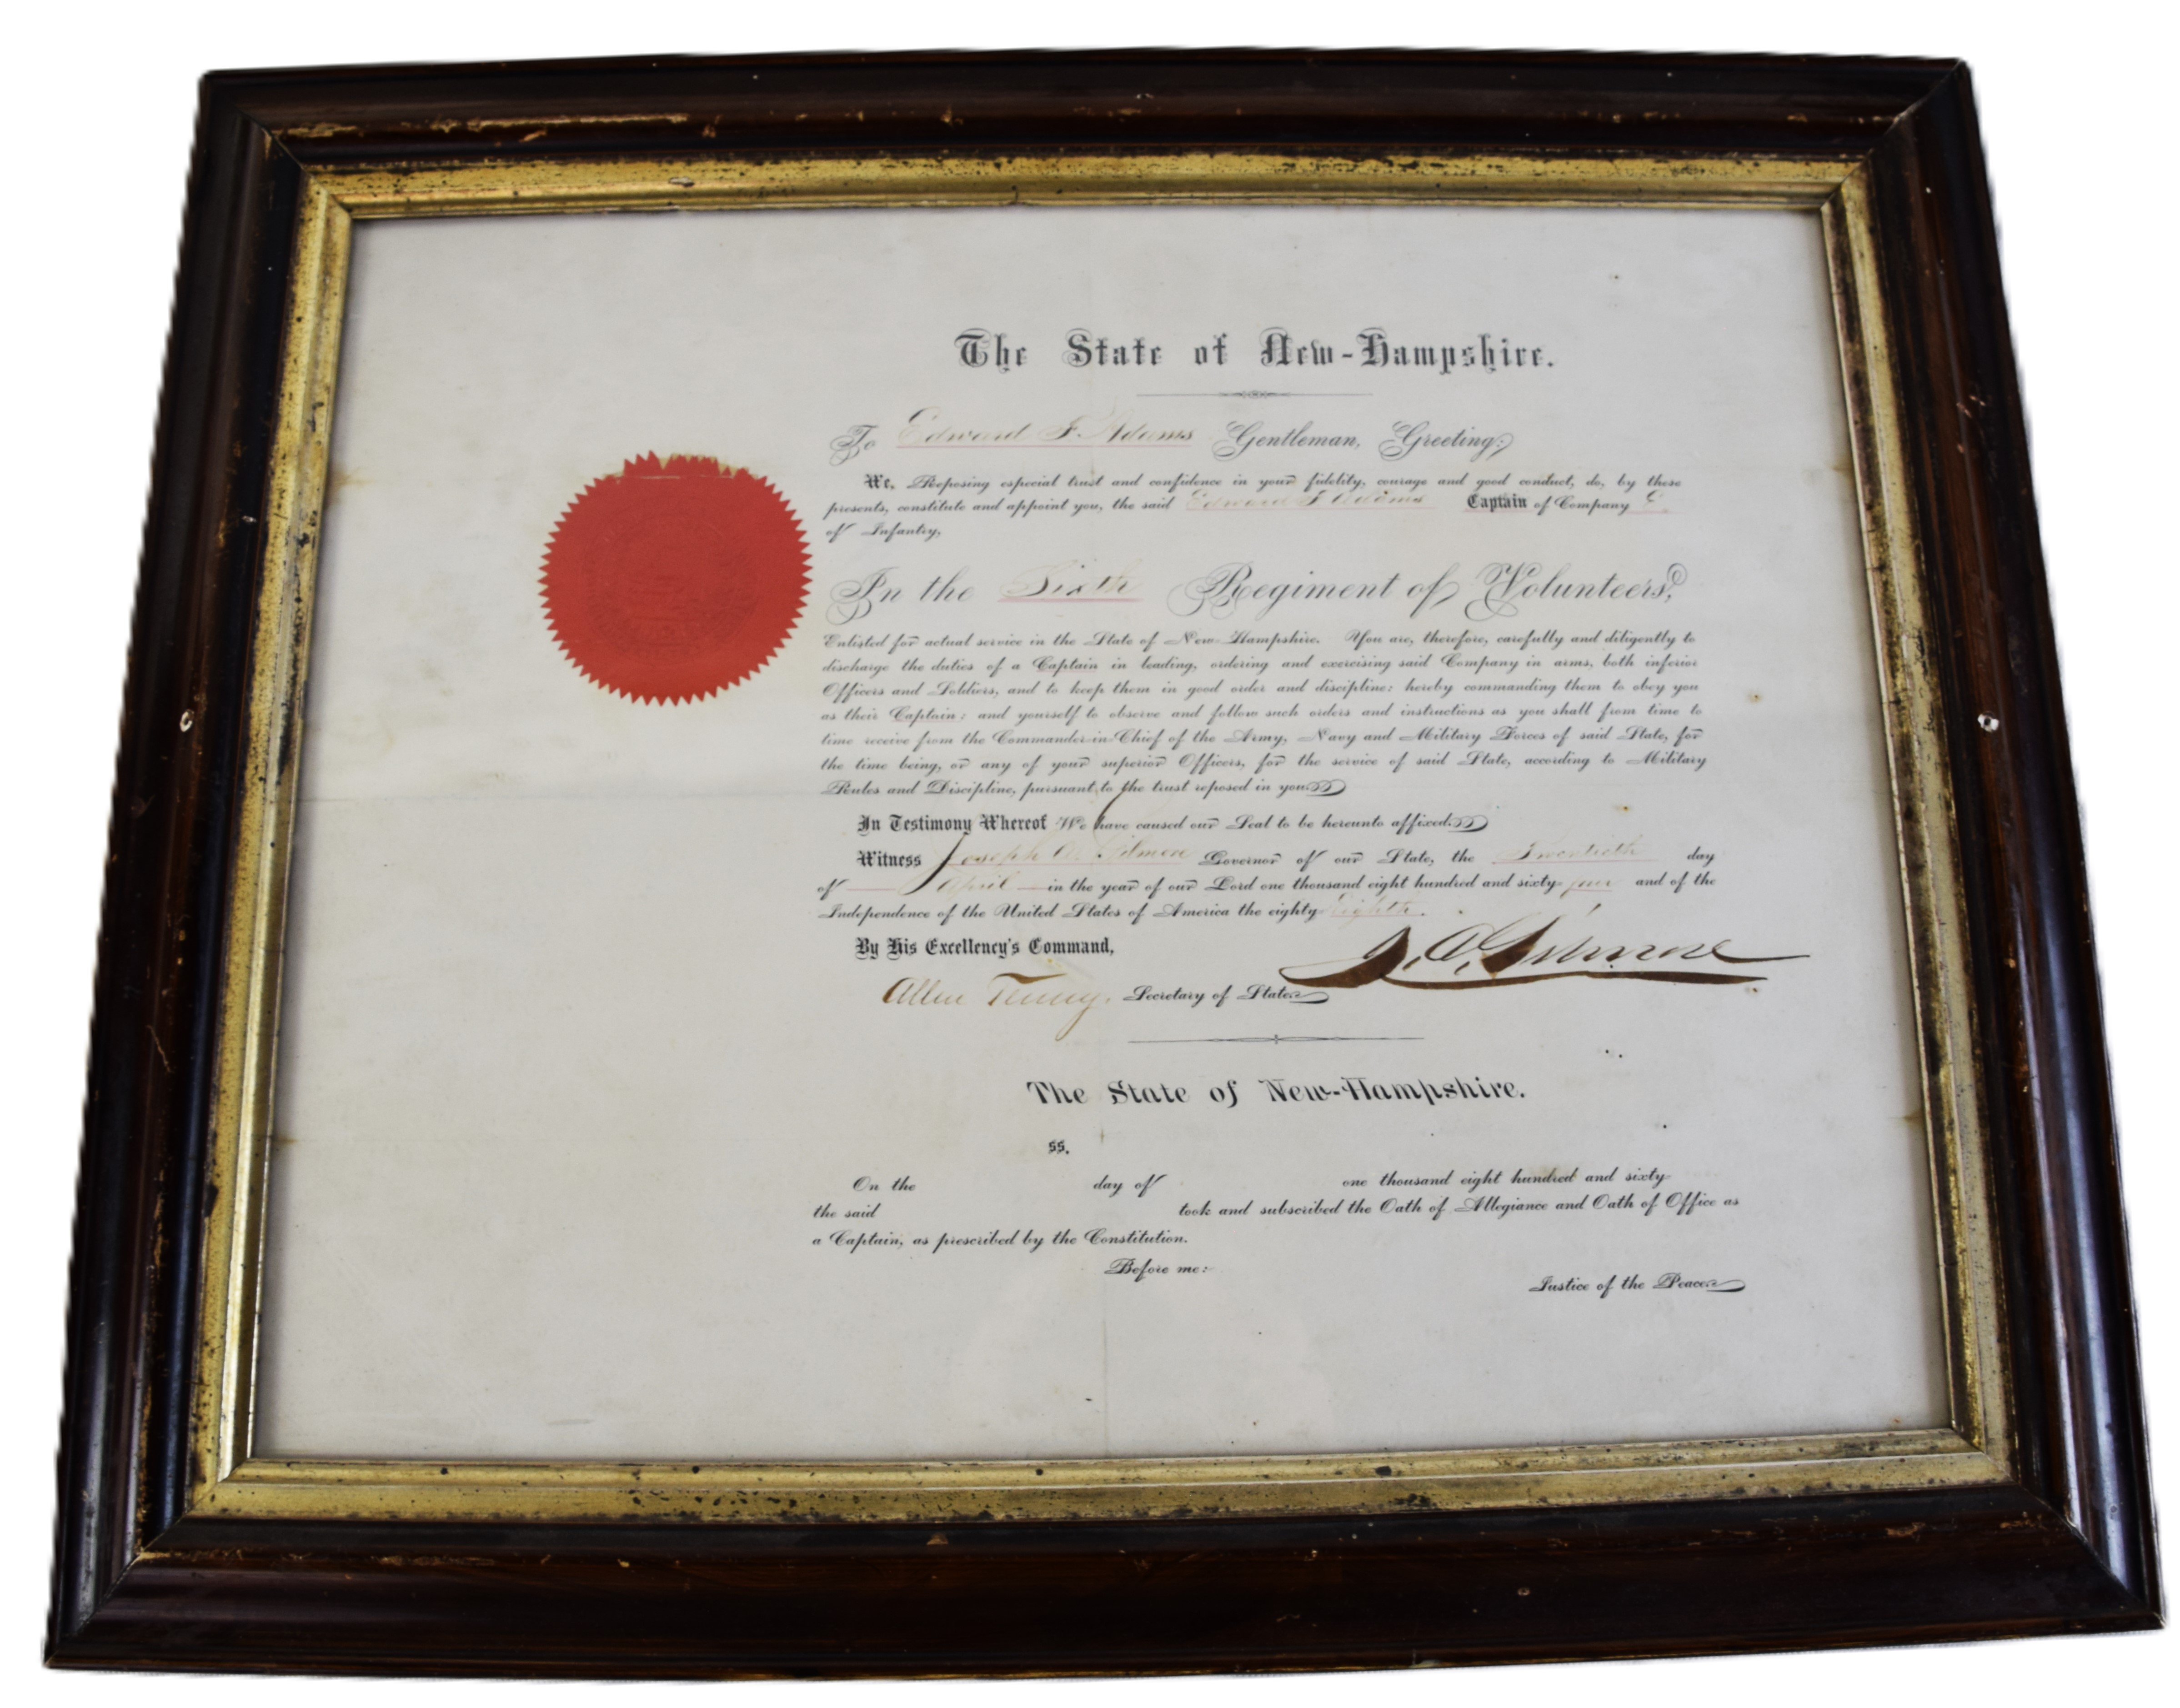 The State of New-Hampshire.
To Edward F. Adams Gentleman, Greeting:
We, Reposing especial trust and confidence in your fidelity, courage and good conduct, do, by these
presents, constitute and appoint you, the said Edward F Adams Captain of Company
of Infantry,
In the Sixth Regiment of Volunteers,
Enlisted for actual service in the State of New-Hampshire. You are, therefore, carefully and diligently to
discharge the duties of a Captain in leading, ordering and exercising said Company in arms, both inferior
Officers and Soldiers, and to keep them in good order and discipline: hereby commanding them to obey you
as their Captain: and yourself to observe and follow such orders and instructions as you shall from time to
time receive from the Commander-in-Chief of the Army, Navy and Military Forces of said State, for
the time being, or any of your superior Officers, for the service of said State, according to Military
Rules and Discipline, pursuant to the trust reposed in you.
In Testimony Whereof We have caused our Seal to be hereunto affixed.
Witness Joseph A. Gilmore Governor of our State, the Twentieth day
of April in the year of our Lord one thousand eight hundred and sixty-four and of the
Independence of the United States of America the eighty-eighth.
By His Excellency's Command,
J. A. Gilmore
Allen Tenny. Secretary of State.
The State of New-Hampshire.
ss.
On the day of one thousand eight hundred and sixty-
the said took and subscribed the Oath of Allegiance and Oath of Office as
a Captain, as prescribed by the Constitution.
Before me:
Justice of the Peace.